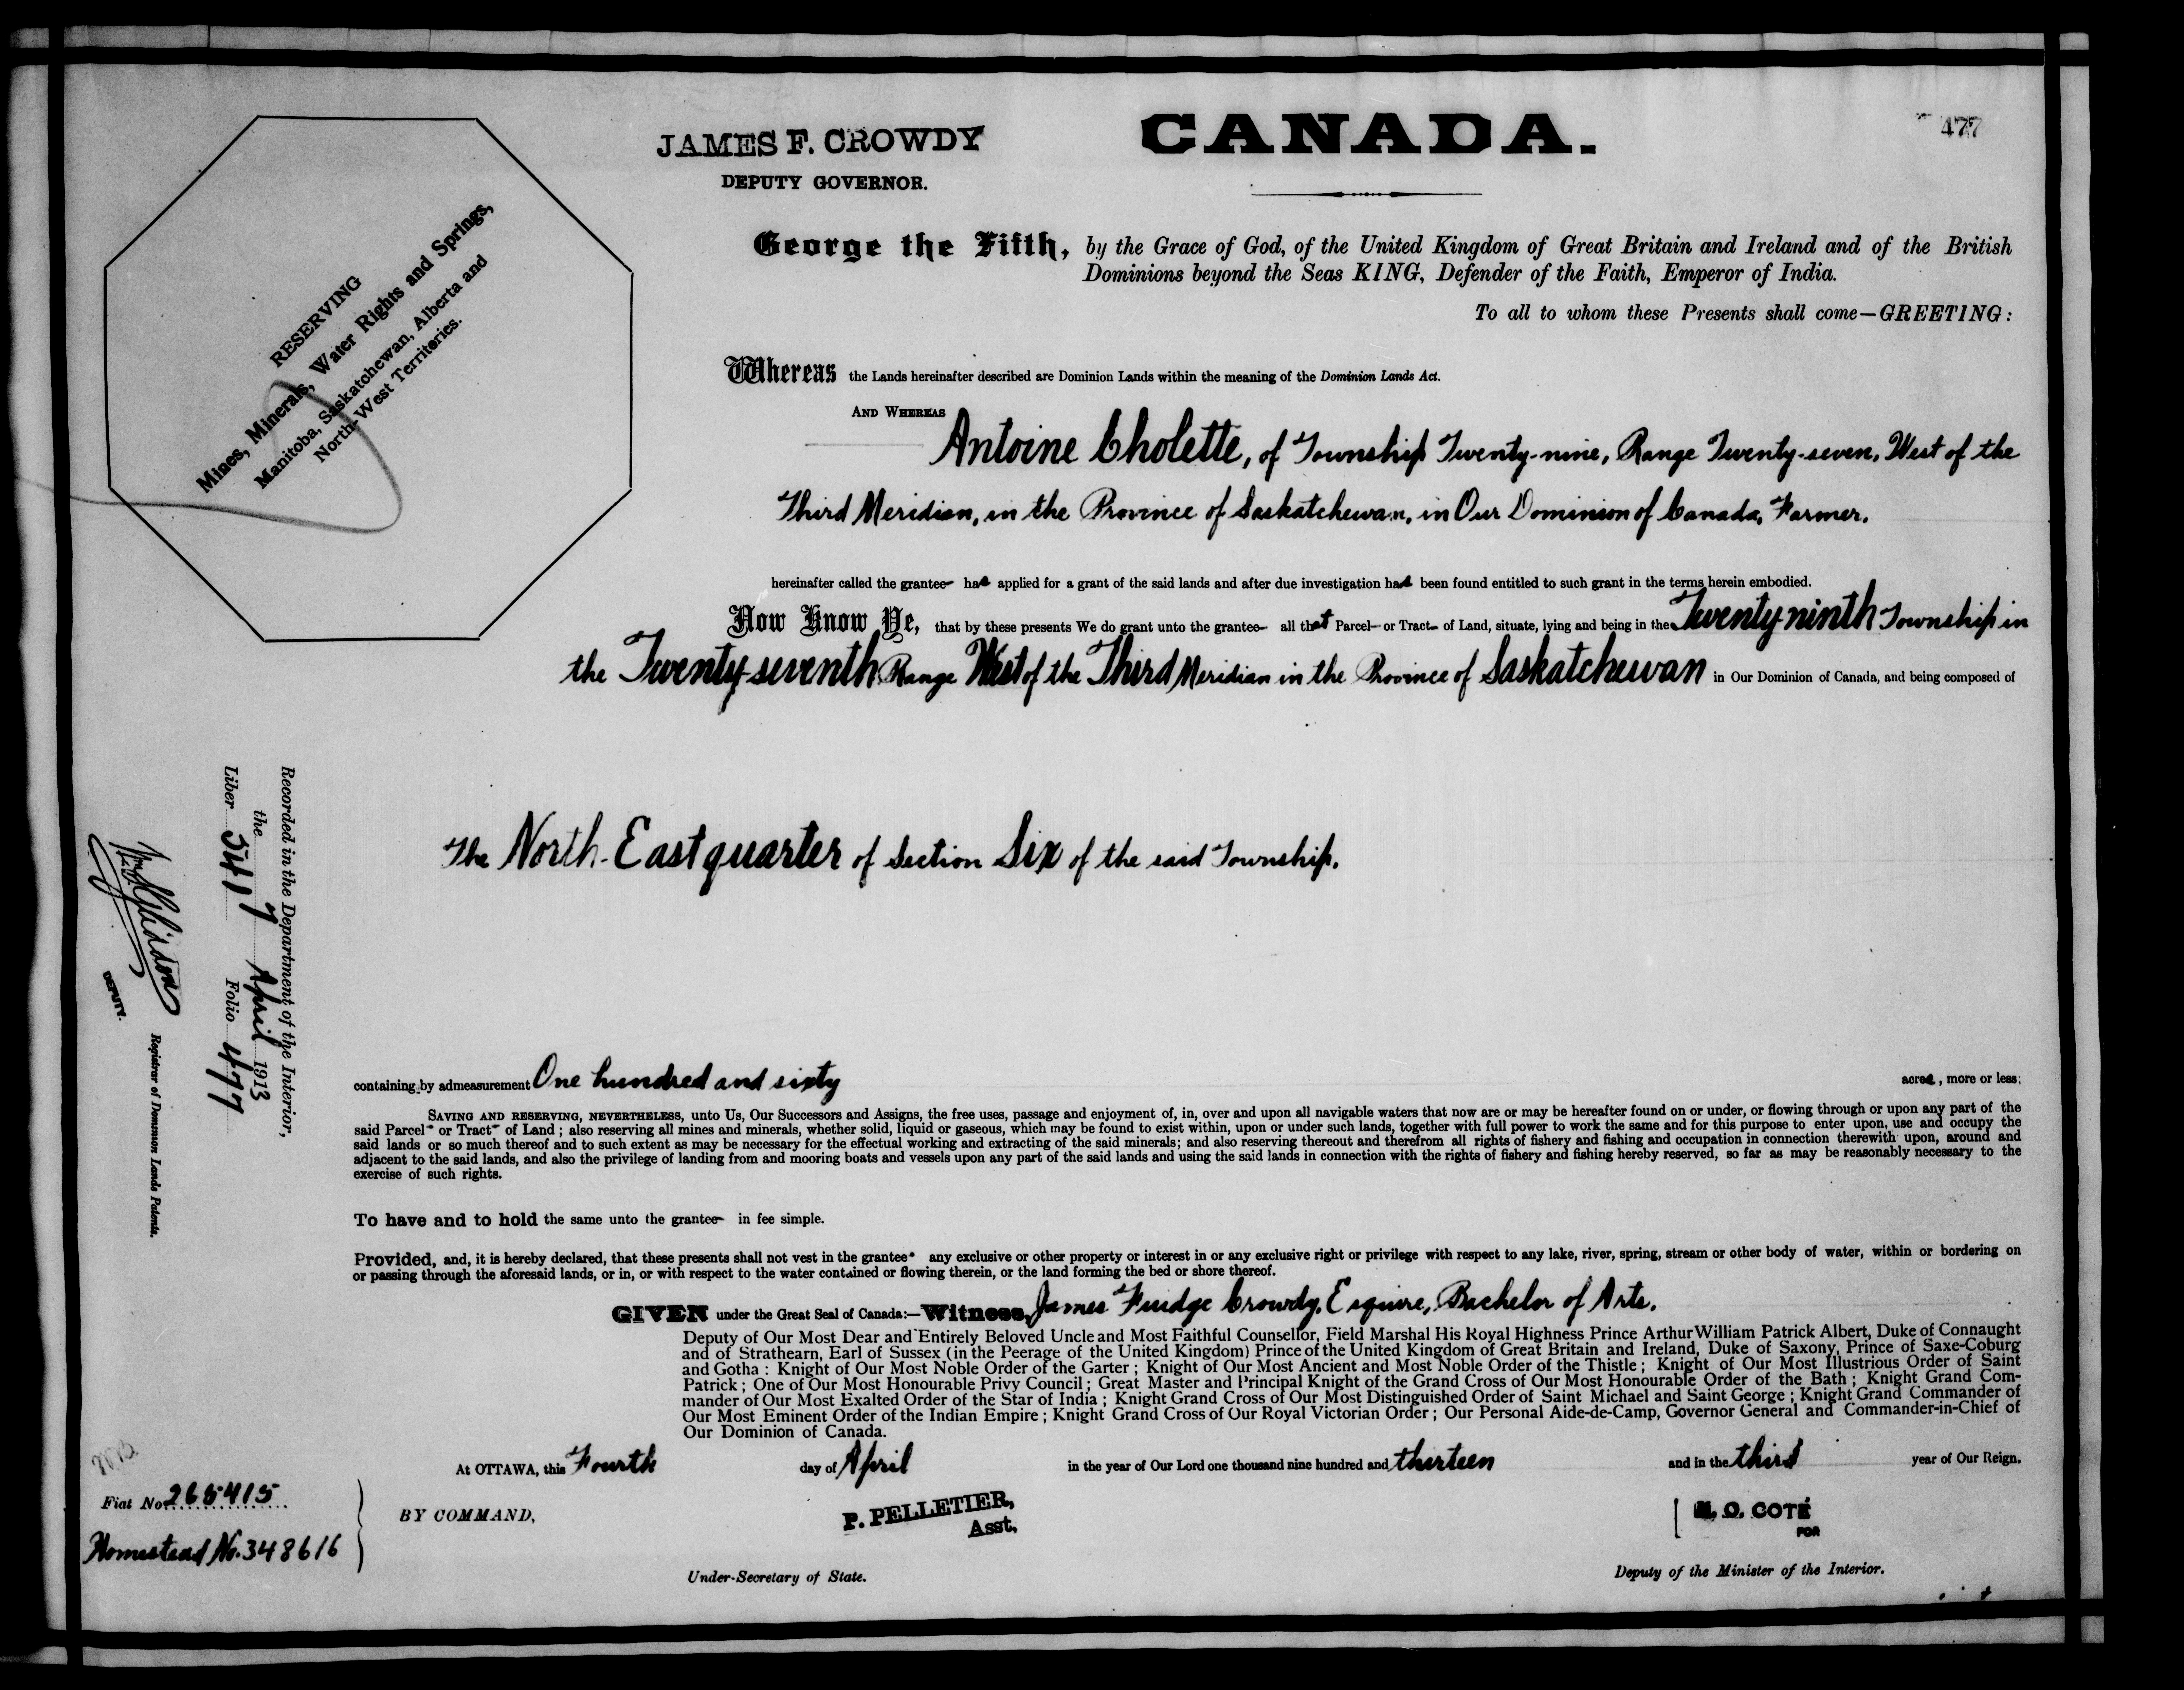 477
JAMES F. CROWDY
DEPUTY GOVERNOR.
CANADA.
RESERVING
Mines, Minerals, Water Rights and Springs,
Manitoba, Saskatchewan, Alberta and
North-West Territories.
George the Fifth, by the Grace of God, of the United Kingdom of Great Britain and Ireland and of the British
Dominions beyond the Seas KING, Defender of the Faith, Emperor of India.
To all to whom these Presents shall come—GREETING:
Whereas the Lands hereinafter described are Dominion Lands within the meaning of the Dominion Lands Act.
AND WHEREAS
Antoine Cholette, of Township Twenty-nine, Range Twenty-seven, West of the
Third Meridian, in the Province of Saskatchewan, in Our Dominion of Canada, Farmer.
hereinafter called the grantee has applied for a grant of the said lands and after due investigation has been found entitled to such grant in the terms herein embodied.
Now Know Ye, that by these presents We do grant unto the grantee all that Parcel or Tract of Land, situate, lying and being in the Twenty-ninth Township in
the Twenty-seventh Range West of the Third Meridian in the Province of Saskatchewan in Our Dominion of Canada, and being composed of
The North-East quarter of Section Six of the said Township.
containing by admeasurement One hundred and sixty acres, more or less;
SAVING AND RESERVING, NEVERTHELESS, unto Us, Our Successors and Assigns, the free uses, passage and enjoyment of, in, over and upon all navigable waters that now are or may be hereafter found on or under, or flowing through or upon any part of the
said Parcel or Tract of Land; also reserving all mines and minerals, whether solid, liquid or gaseous, which may be found to exist within, upon or under such lands, together with full power to work the same and for this purpose to enter upon, use and occupy the
said lands or so much thereof and to such extent as may be necessary for the effectual working and extracting of the said minerals; and also reserving thereout and therefrom all rights of fishery and fishing and occupation in connection therewith upon, around and
adjacent to the said lands, and also the privilege of landing from and mooring boats and vessels upon any part of the said lands and using the said lands in connection with the rights of fishery and fishing hereby reserved, so far as may be reasonably necessary to the
exercise of such rights.
To have and to hold the same unto the grantee in fee simple.
Provided, and, it is hereby declared, that these presents shall not vest in the grantee any exclusive or other property or interest in or any exclusive right or privilege with respect to any lake, river, spring, stream or other body of water, within or bordering on
or passing through the aforesaid lands, or in, or with respect to the water contained or flowing therein, or the land forming the bed or shore thereof.
GIVEN under the Great Seal of Canada:—Witness, James Fudge Crowdy, Esquire, Bachelor of Arts.
Deputy of Our Most Dear and Entirely Beloved Uncle and Most Faithful Counsellor, Field Marshal His Royal Highness Prince Arthur William Patrick Albert, Duke of Connaught
and of Strathearn, Earl of Sussex (in the Peerage of the United Kingdom) Prince of the United Kingdom of Great Britain and Ireland, Duke of Saxony, Prince of Saxe-Coburg
and Gotha: Knight of Our Most Noble Order of the Garter; Knight of Our Most Ancient and Most Noble Order of the Thistle; Knight of Our Most Illustrious Order of Saint
Patrick; One of Our Most Honourable Privy Council; Great Master and Principal Knight of the Grand Cross of Our Most Honourable Order of the Bath; Knight Grand Com-
mander of Our Most Exalted Order of the Star of India; Knight Grand Cross of Our Most Distinguished Order of Saint Michael and Saint George; Knight Grand Commander of
Our Most Eminent Order of the Indian Empire; Knight Grand Cross of Our Royal Victorian Order; Our Personal Aide-de-Camp, Governor General and Commander-in-Chief of
Our Dominion of Canada.
At OTTAWA, this Fourth day of April in the year of Our Lord one thousand nine hundred and thirteen and in the third year of Our Reign.
BY COMMAND,
P. PELLETIER,
Asst.
Under-Secretary of State.
N. O. COTÉ
FOR
Deputy of the Minister of the Interior.
Fiat No. 265415
Homestead No. 348616
Recorded in the Department of the Interior,
the 7 April 1913
Liber 541 Folio 477
DEPUTY.
Registrar of Dominion Lands Patents.